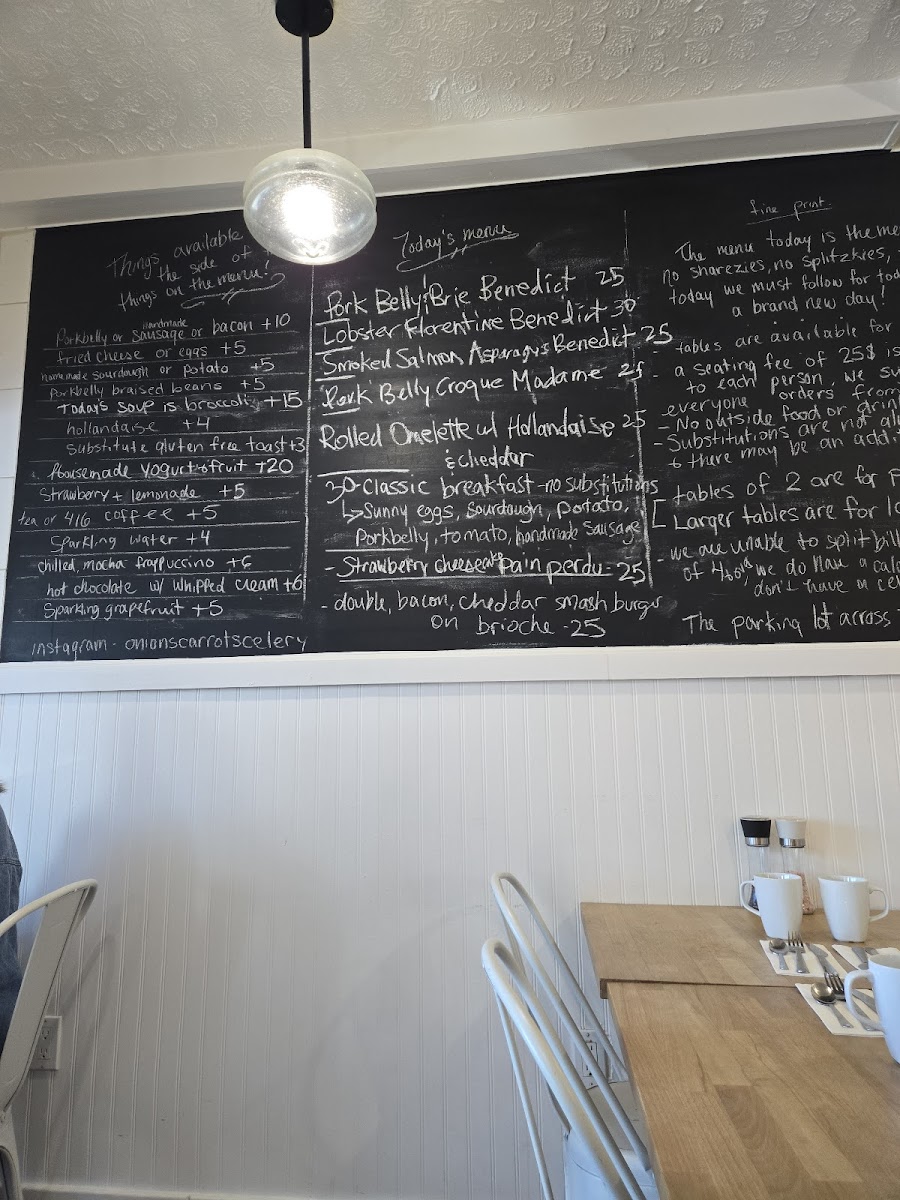 Things available
the side of
things on the menu!
Handmade
Porkbelly or sausage or bacon +10
fried cheese or eggs +5
homemade sourdough or potato +5
Porkbelly braised beans +5
Today's soup is broccoli +15
hollandaise +4
substitute gluten free toast +3
Housemade yogurt + fruit +20
Strawberry + lemonade +5
tea or 416 coffee +5
Sparkling water +4
chilled, mocha frappuccino +6
hot chocolate w/ whipped cream +6
Sparkling grapefruit +5
instagram - onionscarrotscelery
Today's menu
Pork Belly & Brie Benedict 25
Lobster Florentine Benedict 30
Smoked Salmon Asparagus Benedict 25
Pork Belly Croque Madame 25
Rolled Omelette w/ Hollandaise 25
& cheddar
30-classic breakfast-no substitutions
Sunny eggs, sourdough, potato,
Porkbelly, tomato, handmade sausage
- Strawberry cheesecake pain perdu - 25
- double, bacon, cheddar smash burger
on brioche - 25
fine print
The menu today is the me
no sharezies, no splitzkies,
today we must follow for tod
a brand new day!
- tables are available for
- a seating fee of 25$ is
to each person, we su
everyone orders from
- No outside food or drin
- Substitutions are not al
& there may be an addi
tables of 2 are for p
Larger tables are for la
- we are unable to split bill
of 4 we do have a calc
don't have a ce
The parking lot across